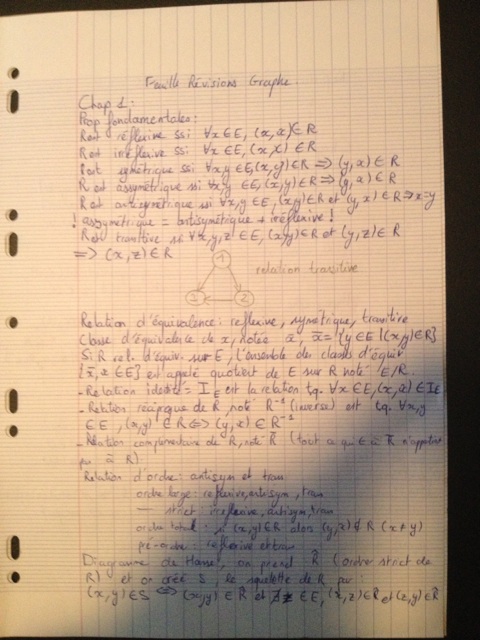 Feuille Révisions Graphe.
Chap 1:
Prop fondamentales:
R est réflexive ssi ∀x∈E, (x,x)∈R
R est irréflexive ssi ∀x∈E, (x,x)∉R
R est symétrique ssi ∀x,y∈E,(x,y)∈R ⇒ (y,x)∈R
R est assymétrique ssi ∀x,y∈E,(x,y)∈R ⇒ (y,x)∉R
R est antisymétrique ssi ∀x,y∈E,(x,y)∈R et (y,x)∈R ⇒ x=y
! assymétrique = antisymétrique + irréflexive!
R est transitive si ∀x,y,z∈E,(x,y)∈R et (y,z)∈R
⇒ (x,z)∈R
1
relation transitive
3 2
Relation d'équivalence: reflexive, symétrique, transitive
Classe d'équivalence de x, notée x̄, x̄={y∈E|(x,y)∈R}
Si R rel. d'équiv sur E, l'ensemble des classes d'équiv
{x̄, x∈E} est appelé quotient de E sur R noté E/R.
- Relation identité = I_E est la relation tq. ∀x∈E,(x,x)∈I_E
- Relation réciproque de R, noté R⁻¹ (inverse) est tq. ∀x,y
∈E,(x,y)∈R ⇔ (y,x)∈R⁻¹
- Relation complementaire de R, noté R̄ (tout ce qui ∈ à R̄ n'appartient
pas à R)
Relation d'ordre: antisym et tran
ordre large: reflexive, antisym, tran
— strict: irreflexive, antisym, tran
ordre total: si (x,y)∈R alors (y,x)∉R (x≠y)
pré-ordre: réflexive et tran
Diagramme de Hasse, on prend R̂ (ordre strict de
R) et on créé S, le squelette de R par:
(x,y)∈S ⇔ (x,y)∈R̂ et ∄z∈E, (x,z)∈R̂ et (z,y)∈R̂